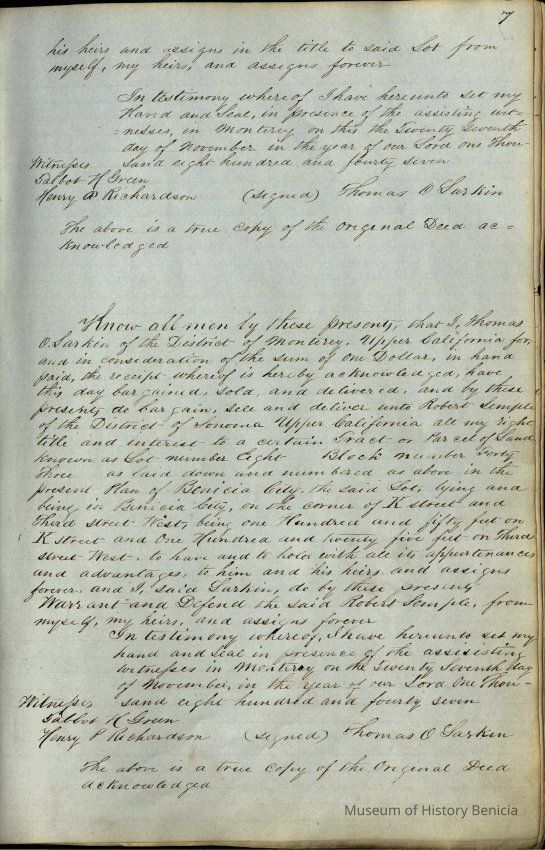 7
his heirs and assigns in the title to said Lot from
myself, my heirs, and assigns forever
In testimony whereof I have hereunto set my
Hand and Seal, in presence of the assisting wit=
=nesses, in Monterey on this the Twenty Seventh
day of November in the year of our Lord one Thou-
Witnesses sand eight hundred and fourty seven
Talbot H Green
Henry P Richardson (signed) Thomas O Larkin
The above is a true copy of the original Deed ac=
knowledged
Know all men by these presents, that I, Thomas
O. Larkin of the District of Monterey, Upper California for
and in consideration of the sum of One Dollar, in hand
paid, the receipt whereof is hereby acknowledged, have
this day bargained, sold, and delivered, and by these
presents do bargain, sell and deliver unto Robert Semple
of the District of Sonoma Upper California all my right
title and interest to a certain Tract or Parcel of Land
known as Lot number Eight Block number Forty
Three as laid down and numbered as above in the
present Plan of Benicia City, the said Lot, lying and
being in Benicia City, on the corner of K street and
Third street West, being one Hundred and fifty feet on
K street and One Hundred and twenty five feet on Third
street West, to have and to hold with all its appurtenances
and advantages, to him and his heirs and assigns
forever, and I, said Larkin, do by these presents
Warrant and Defend the said Robert Semple, from
myself, my heirs, and assigns forever
In testimony whereof, I have hereunto set my
hand and Seal in presence of the assisting
witnesses in Monterey on the Twenty Seventh day
of November, in the year of our Lord One Thou-
Witnesses sand eight hundred and fourty seven
Talbot H Green
Henry P Richardson (signed) Thomas O Larkin
The above is a true copy of the Original Deed
acknowledged
Museum of History Benicia